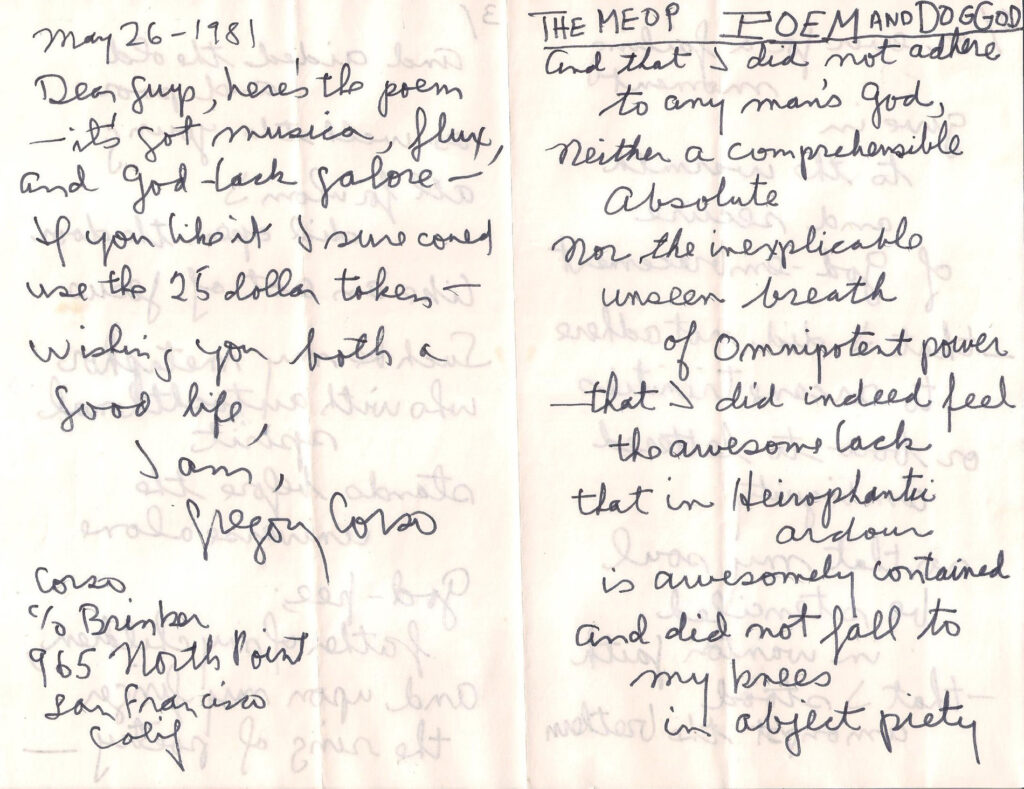 May 26-1981
Dear guys, here's the poem
— it's got musica, flux,
and god-lack galore —
If you like it I sure could
use the 25 dollar token —
Wishing you both a
good life,
I am,
Gregory Corso
Corso
c/o Brinker
965 North Point
San Francisco
Calif
THE MEOP POEM AND DOGGOD
And that I did not adhere
to any man's God,
Neither a comprehensible
Absolute
Nor the inexplicable
unseen breath
of Omnipotent power
—that I did indeed feel
the awesome lack
that in Heirophantic
ardour
is awesomely contained
and did not fall to
my knees
in abject piety